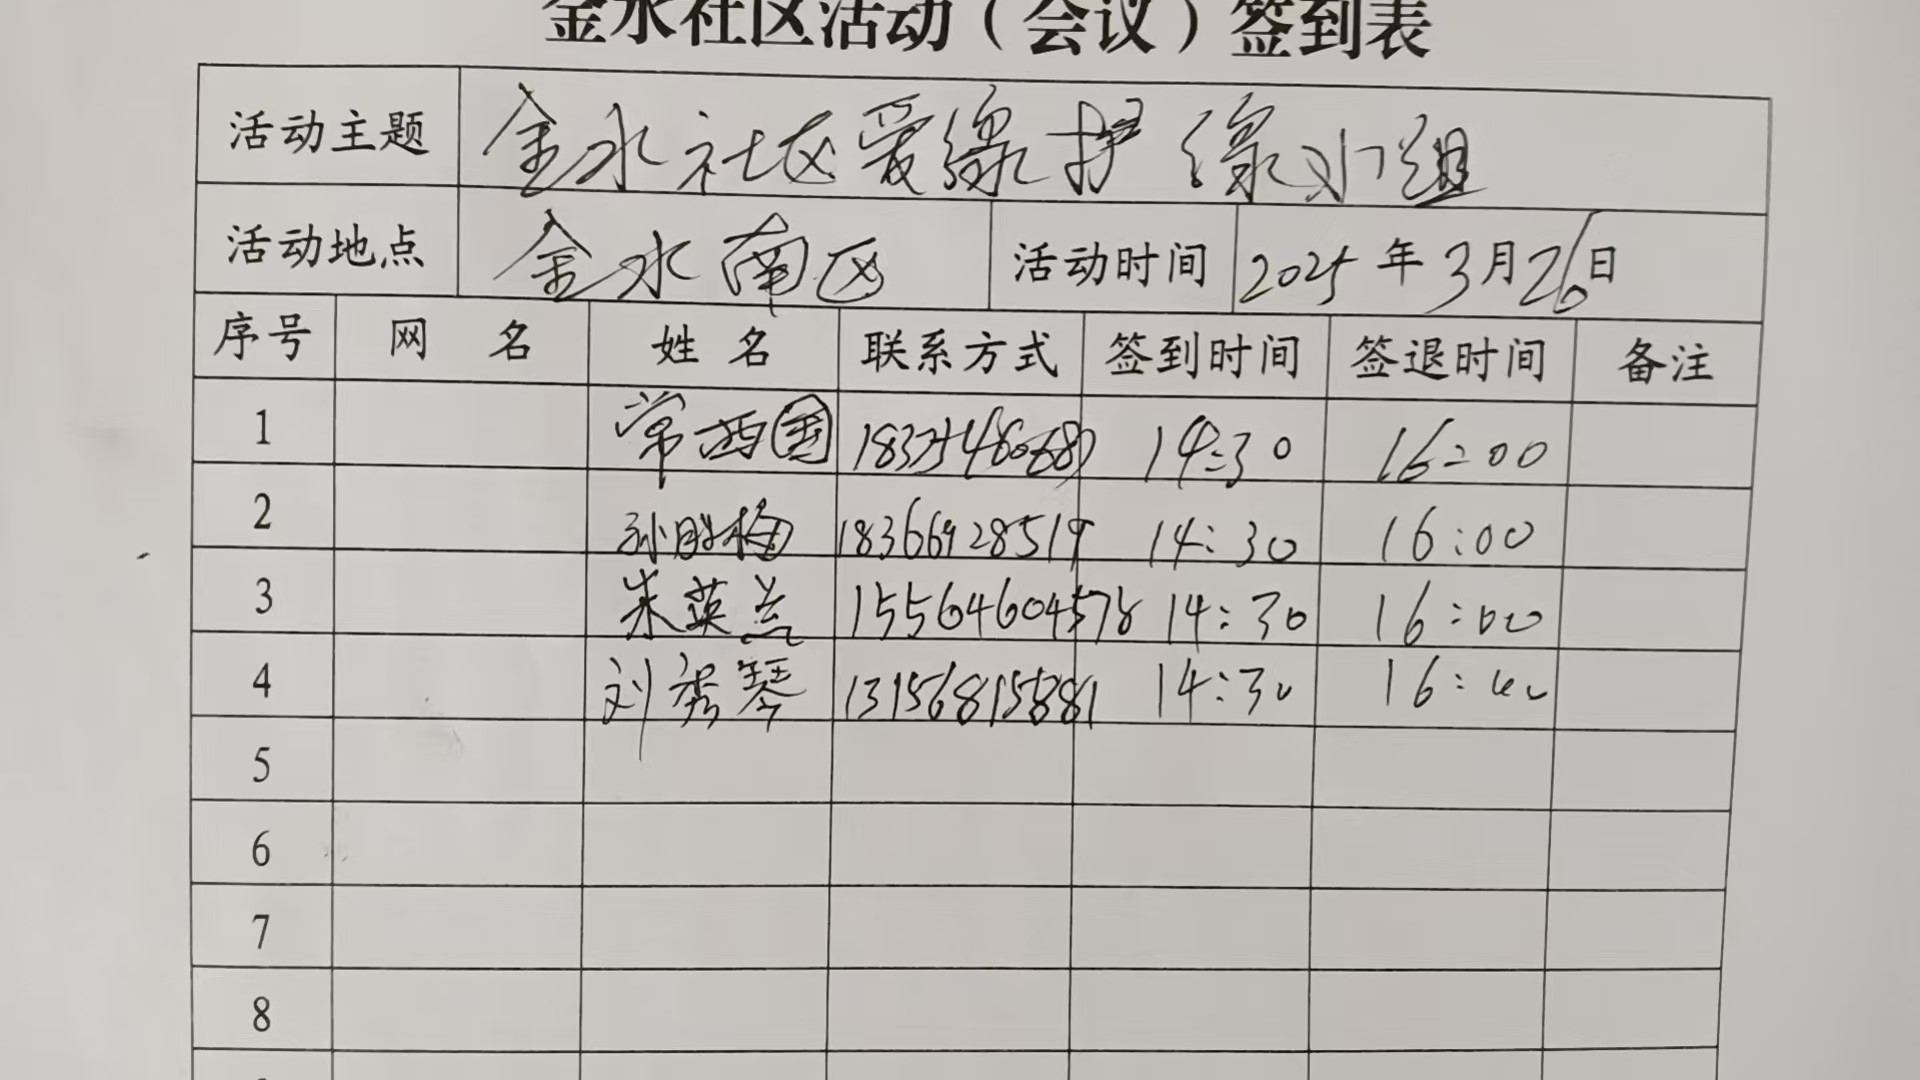 金水社区活动（会议）签到表
活动主题 金水社区爱缘护缘小组
活动地点 金水南区 活动时间 2025年3月26日
序号 网 名 姓 名 联系方式 签到时间 签退时间 备注
1 常西国 14:30 16:00
2 孙胜梅 18366928519 14:30 16:00
3 朱英兰 15564604578 14:30 16:00
4 刘秀琴 13156815881 14:30 16:00
5
6
7
8